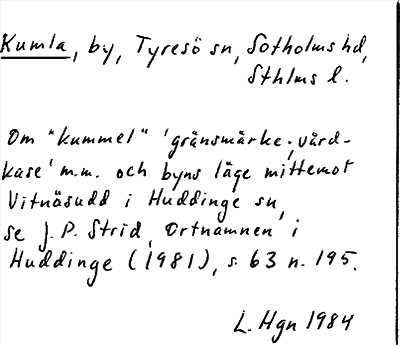 Kumla, by, Tyresö sn, Sotholms hd,
Sthlms l.
Om "kummel" 'gränsmärke; vård-
kase' m.m. och byns läge mittemot
Vitnäsudd i Huddinge sn,
se J. P. Strid, Ortnamnen i
Huddinge (1981), s. 63 n. 195.
L. Hgn 1984